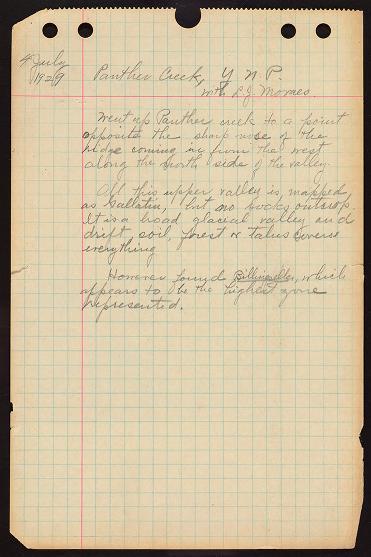 4 July
1929
Panther Creek, Y. N. P.
with L. J. Moraes.
Went up Panther creek to a point
opposite the sharp nose of the
ridge coming in from the west
along the north side of the valley.
All this upper valley is mapped
as Gallatin, but no rocks outcrop.
It is a broad glacial valley and
drift, soil, forest or talus covers
everything
However found, which
appears to be the highest zone
represented.